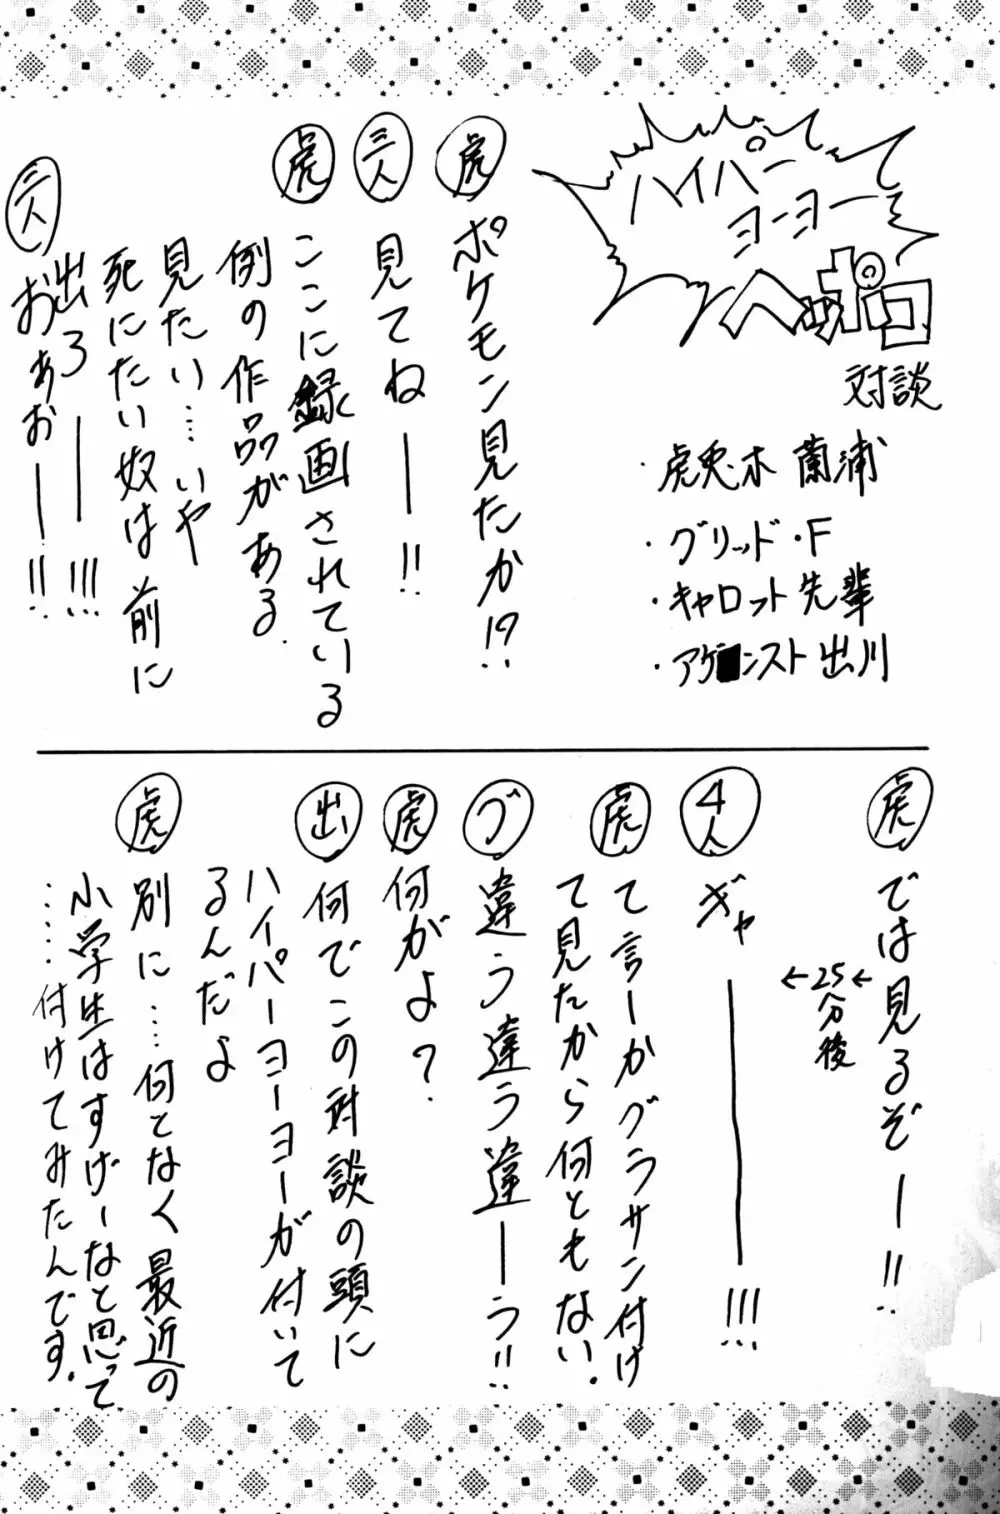 ハイパー
ヨーヨー
へっポコ
対談
・虎兎木 蘭浦
・グリッド・F
・キャロット先輩
・アゲンスト出川
虎 ポケモン見たか!?
三人 見てねーー!!
虎 ここに録画されている
例の作品がある.
見たい……いや
死にたい奴は前に
出ろーー!!!
三人 おぁぉーー!!
虎 では見るぞー!!
←25分後←
4人 ギャーーー!!!
虎 て言ーかグラサン付け
て見たから何ともない.
グ 違う違う違ーう!!
虎 何がよ?
出 何でこの対談の頭に
ハイパーヨーヨーが付いて
るんだよ
虎 別に……何となく最近の
小学生はすげーなと思って
……付けてみたんです.